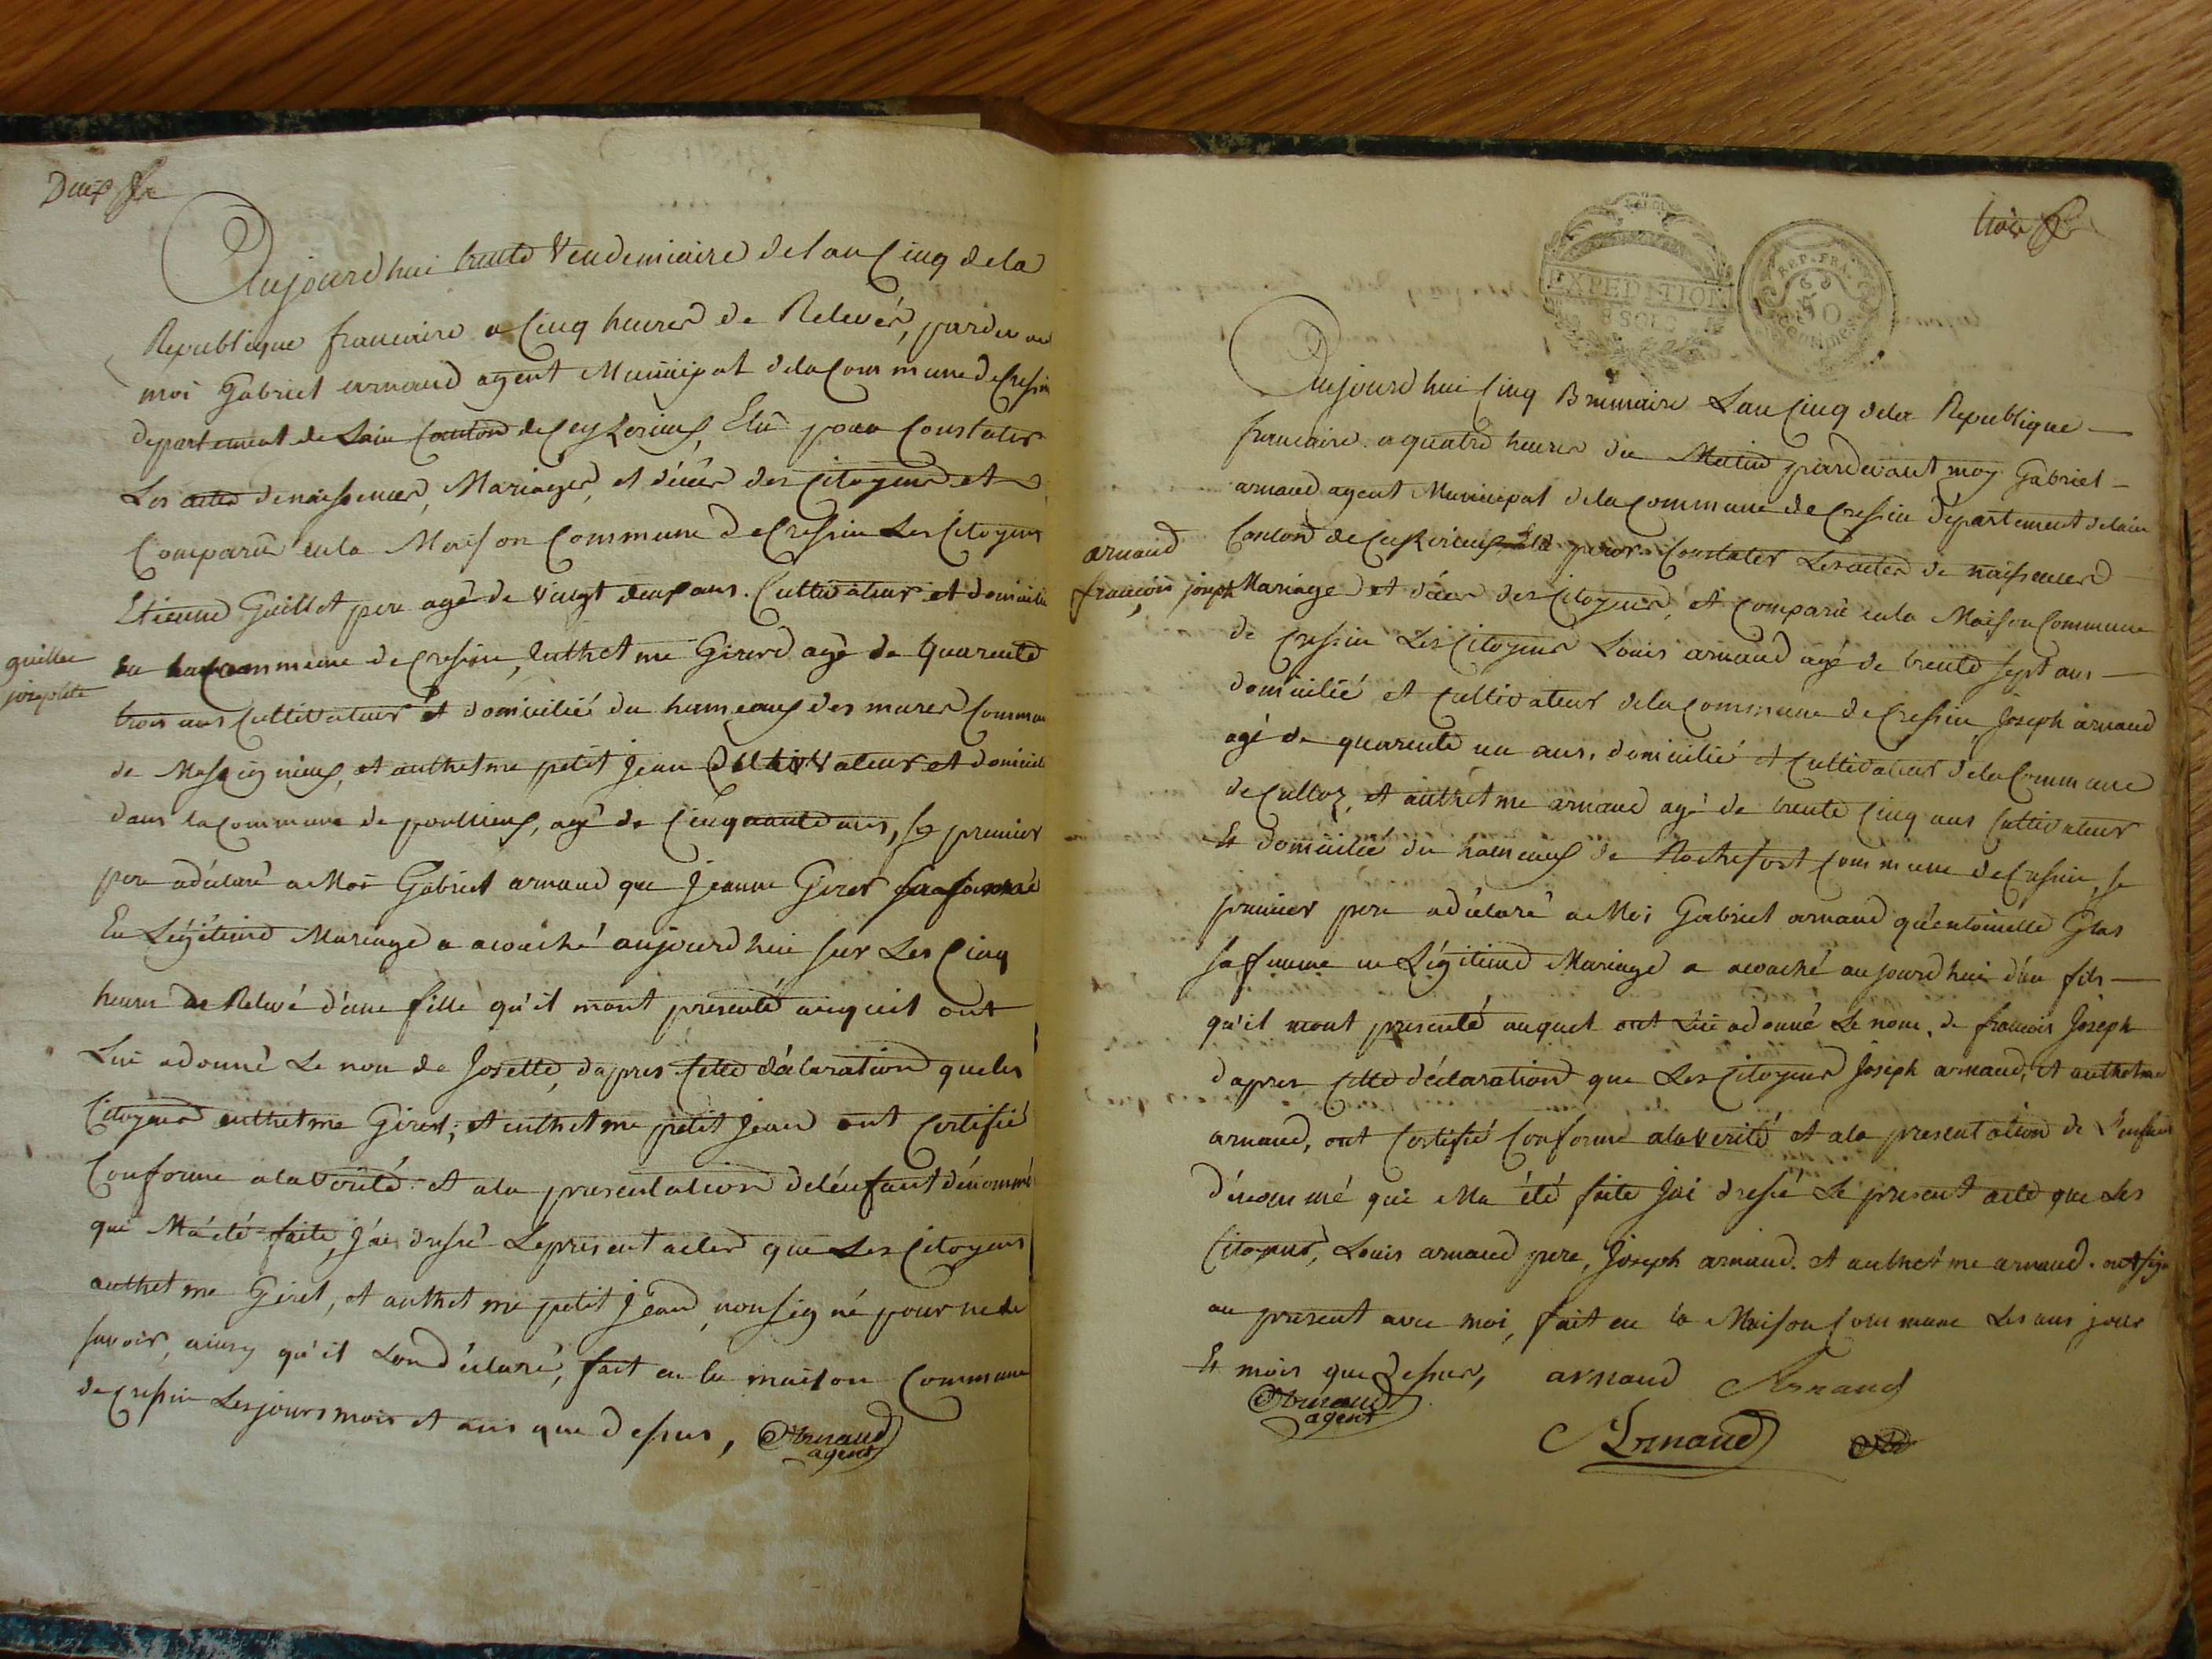 Deux
Aujourdhui trente Vendemiaire de lan Cinq dela
Republique francaise a Cinq heures de Relevée, pardevan
moi Gabriel arnaud agent Municipal dela Commune de Cressin
departement de Lain Canton de Ceyzerieux, Elû pour Constater
Les actes de naissences, Mariages, et décès des Citoyens et
Comparû en la Maison Commune de Cressin Les Citoyens
Etienne Guillet pere agé de vingt deux ans. Cultivateur et domicilié
guillet
josephte
en la Commune de Cressin, anthelme Girerd agé de quarente
trois ans Cultivateur et domicilié du hameaux des mures Commune
de Massignieux, et anthelme petit Jean Cultivateur et domicilié
dans la Commune de pollieux, agé de Cinquante ans, le premier
pere a déclaré a Moi Gabriel arnaud que Jeanne Giret sa femme
En Légitime Mariage a acouché aujourdhui sur Les Cinq
heures de Relevé d'une fille qu'il mont presenté auquel ont
Lui a donné Le nom de Josette, dapres Cette déclaration que les
Citoyens anthelme Giret, et anthelme petit Jean ont Certifié
Conforme a la vérité et a la presentation de lénfant dénommé
qui Ma été faite, Jai dressé Le present actes que Les Citoyens
anthelme Giret, et anthelme petit Jean, non signé pour ne le
savoir, ainsy qu'il Lon déclaré, fait en la maison Commune
de Cressin Les jours mois et ans que dessus, Arnaud
agent
trois
EXPEDITION
8 SOLS
REP. FRA.
50
centimes
Aujourdhui Cinq Brumaire Lan Cinq dela Republique
francaise a quatre heures du Matin pardevant moy Gabriel
arnaud agent Municipal dela Commune de Cressin departement de lain
Canton de Ceyzerieux Elû pour Constater Les actes de naissences
arnaud
francois joseph
Mariage et décès des Citoyens, et Comparû en la Maison Commune
de Cressin Les Citoyens Louis arnaud agé de trente sept ans
domicilié et Cultivateur dela Commune de Cressin, Joseph arnaud
agé de quarente un ans, domicilié et Cultivateur dela Commune
de Culloz, et anthelme arnaud agé de trente Cinq ans Cultivateur
Et domicilié du hameaux de Rochefort Commune de Cressin, le
premier pere a déclaré a Moi Gabriel arnaud qu'entoinette Glas
sa femme en Légitime Mariage a acouché aujourdhui d'un fils
qu'il mont presenté auquel ont Lui a donné Le nom, de francois Joseph
dapres Cette déclaration que Les Citoyens Joseph arnaud, et anthelme
arnaud, ont Certifié Conforme a la verité et a la presentation de L'enfant
dénommé qui Ma été faite Jai dressé Le present acte que Les
Citoyens, Louis arnaud pere, Joseph arnaud. et anthelme arnaud. ont signé
au present avec moi, fait en la Maison Commune Les ans jour
Et mois que dessus, arnaud Arnaud
Arnaud
agent
Arnaud